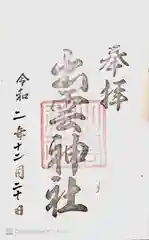 奉拝
出雲神社
令和二年十二月二十日